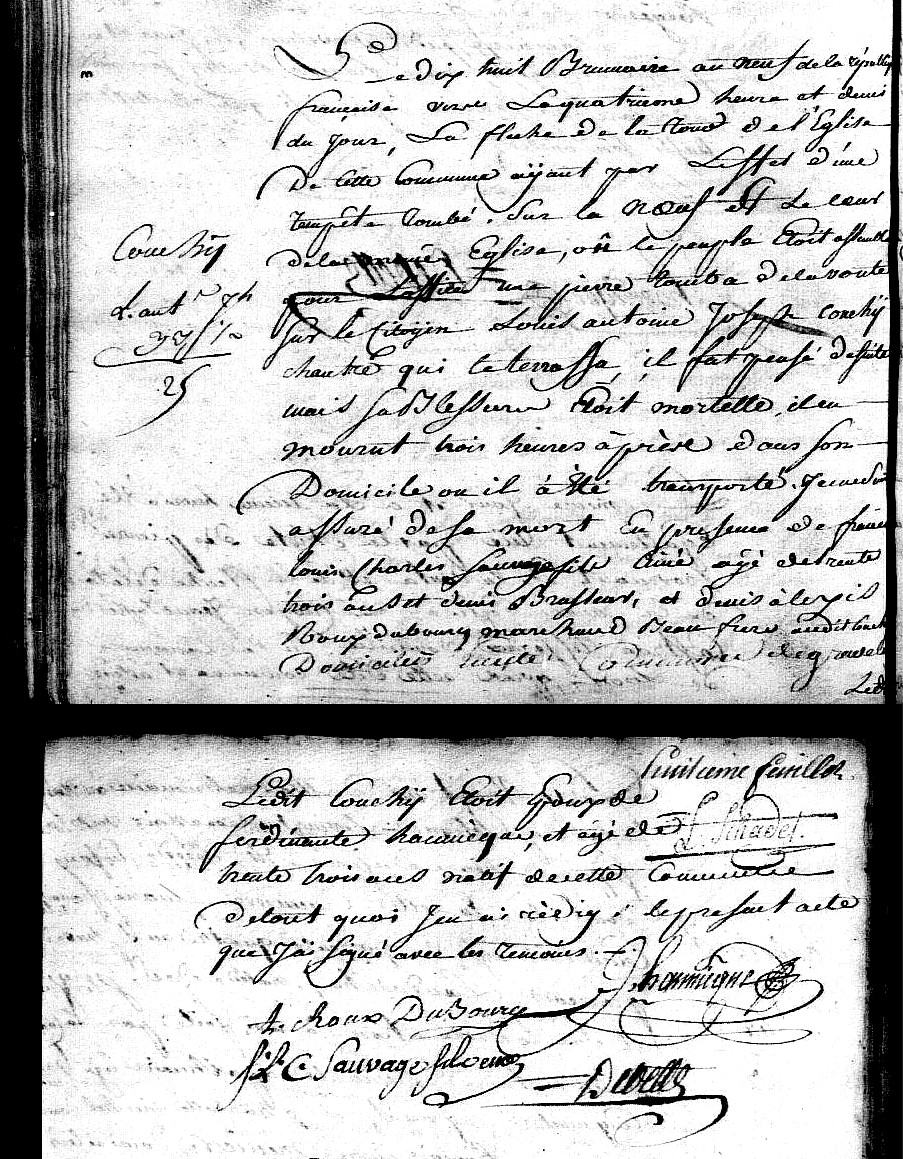 Couchÿ
L. ant.e Jh
33 ½
25
Le dix huit Brumaire an neuf de la républiq
française vers La quatrieme heure et demi
du jour, La fleche de la Tour de l'Eglise
De Cette Commune aÿant par L'effet d'une
tempête tombé. Sur la Nœuf et Le cœur
de la Eglise, où le peuple Etoit assemblé
pour une pierre tomba de la voute
Sur le Citoÿen Louis antoine Joseph couchÿ
chantre qui le terrassa, il fut pensé de suite
mais sa Blessure Etoit mortelle, il en
mourut trois heures àprèse dans son
Domicile ou il à été transporté. Je me suis
assuré de sa mort En presence de françois
louis Charles Sauvage fils Ainé agé de trente
trois ans et demi Brasseur, et denis àlexis
Roux dubourg marchand Beau frere audit Couch
Domiciliés Commune de gravelin
Ledit
Ledit Couchÿ Etoit Epoux de
ferdinante haumicque, et agé de
trente trois ans natif de cette Commune
de tout quoi J'en ai rédigé le present acte
que J'ai signé avec les temoins.
Guilaume
L.
J haumicque
L. Roux DuBourg
f: L C Sauvage fils ainé
Debette